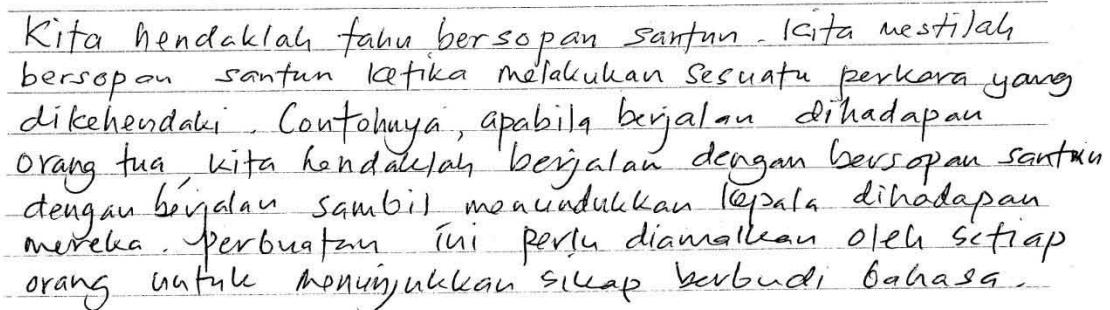 Kita hendaklah tahu bersopan santun. Kita mestilah
bersopan santun ketika melakukan sesuatu perkara yang
dikehendaki. Contohnya, apabila berjalan dihadapan
orang tua, kita hendaklah berjalan dengan bersopan santun
dengan berjalan sambil menundukkan kepala dihadapan
mereka. Perbuatan ini perlu diamalkan oleh setiap
orang untuk menunjukkan sikap berbudi bahasa.